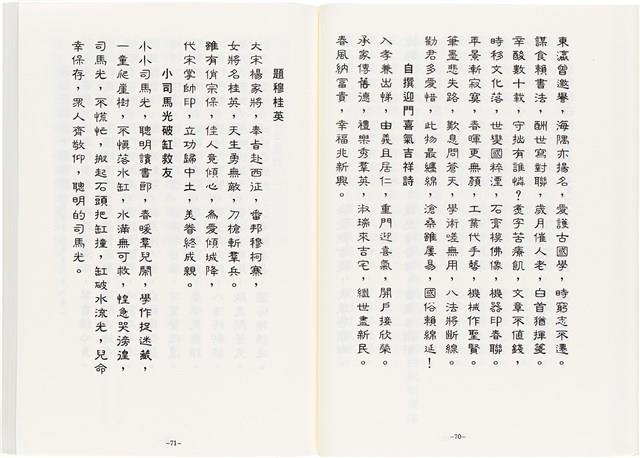 東瀛曾邀譽，海隅亦揚名，愛護古國學，時窮志不遷。
謀食賴書法，酬世寫對聯，歲月催人老，白首猶揮箋。
辛酸數十載，守拙有誰憐？煮字苦療飢，文章不值錢，
時移文化落，世變國粹湮，石膏模佛像，機器印春聯。
平景漸寂寞，春暉更無顏，工業代手藝，機械作聖賢。
筆墨悲失路，歎息問蒼天，學術嗟無用，八法將斷線。
勸君多愛惜，此物最纏綿，滄桑雖屢易，國俗賴綿延！
自撰迎門喜氣吉祥詩
入孝兼出悌，由義且居仁，重門迎喜氣，開戶接欣榮。
承家傳舊德，禮樂秀羣英，淑瑞來吉宅，繼世盡新民。
春風納富貴，幸福兆新興。
-70-
題穆桂英
大宋楊家將，奉旨赴西征，番邦穆柯寨，
女將名桂英，天生勇無敵，刀槍斬羣兵。
雖有俏宗保，佳人竟傾心，為愛傾城降，
代宋掌帥印，立功歸中土，美眷終成親。
小司馬光破缸救友
小小司馬光，聰明讀書郎，春暖羣兒鬧，學作捉迷藏，
一童爬崖樹，不慎落水缸，水滿無可救，惶急哭徬徨，
司馬光，不慌忙，搬起石頭把缸撞，缸破水流光，兒命
幸保存，眾人齊敬仰，聰明的司馬光。
-71-